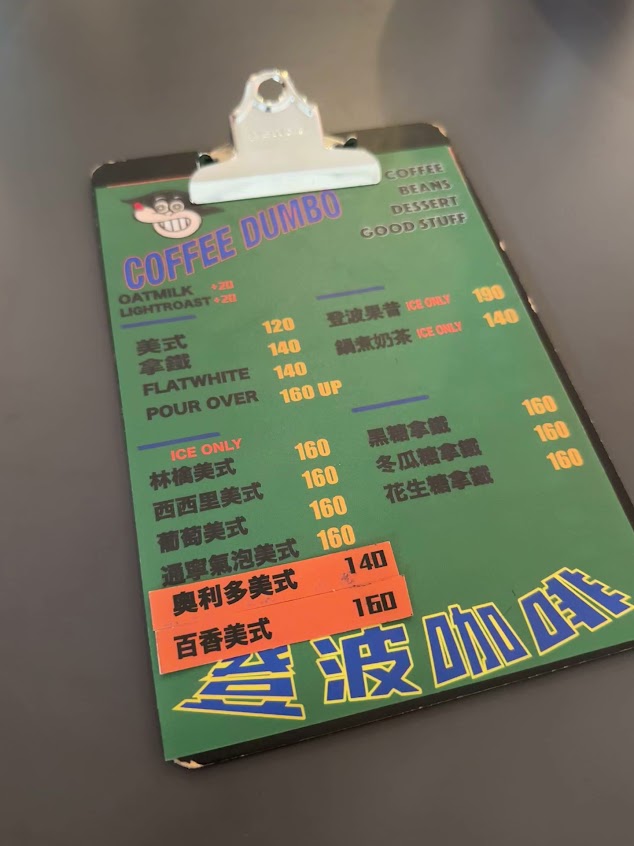 COFFEE
BEANS
DESSERT
GOOD STUFF
COFFEE DUMBO
OATMILK +20
LIGHTROAST +20
美式 120
拿鐵 140
FLATWHITE 140
POUR OVER 160 UP
ICE ONLY
林檎美式 160
西西里美式 160
葡萄美式 160
通寧氣泡美式 160
奧利多美式 140
百香美式 160
登波果昔 ICE ONLY 190
鍋煮奶茶 ICE ONLY 140
黑糖拿鐵 160
冬瓜糖拿鐵 160
花生糖拿鐵 160
登波咖啡